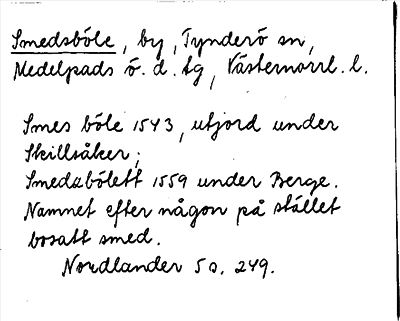 Smedsböle, by, Tynderö sn,
Medelpads ö. d. tg, Västernorrl. l.
Smes böle 1543, utjord under
Skillsåker;
Smedzbölett 1559 under Berge.
Namnet efter någon på stället
bosatt smed.
Nordlander 5 s. 249.